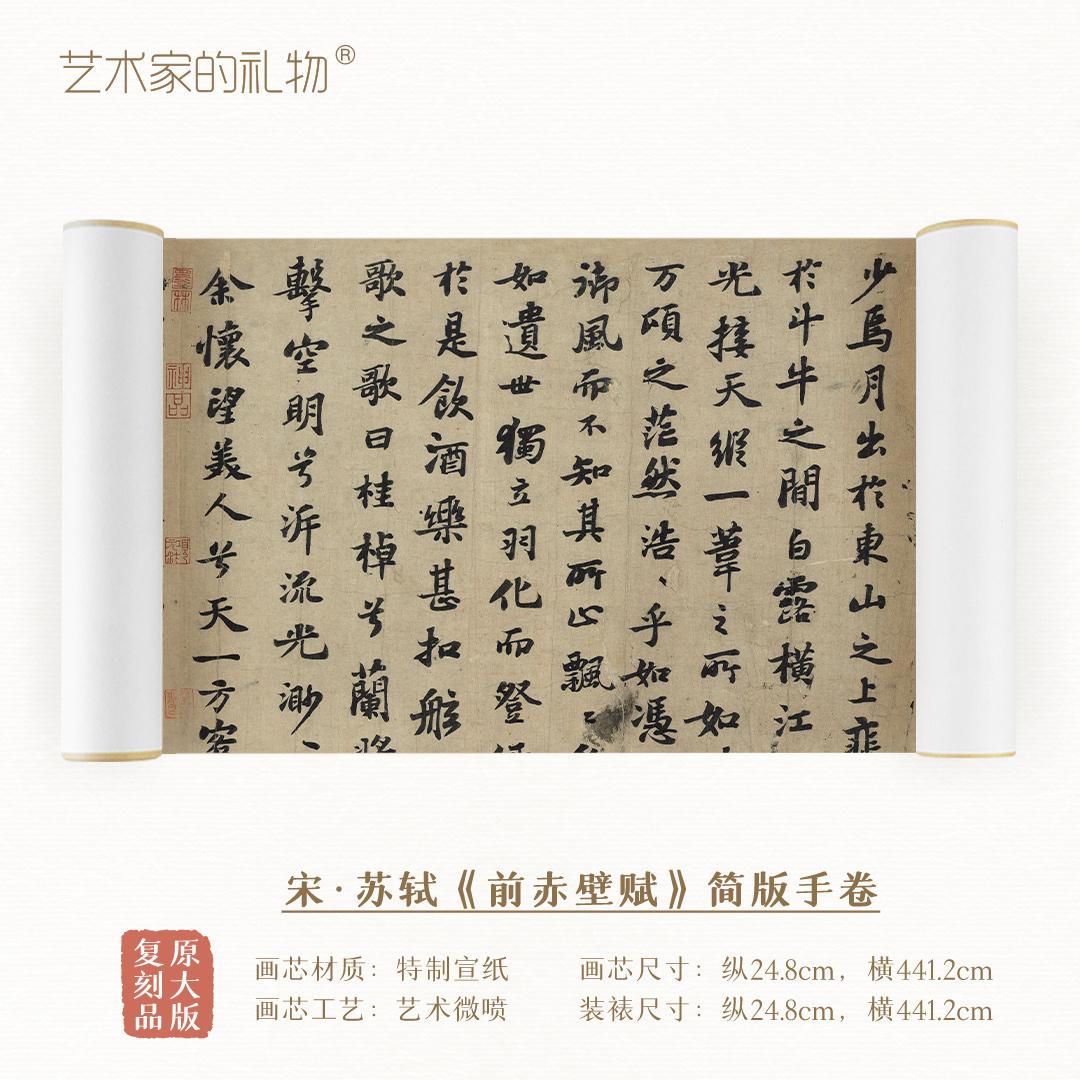 艺术家的礼物®
少焉月出於東山之上
於斗牛之間白露橫江
光接天縱一葦之所如
万頃之茫然浩、乎如憑
御風而不知其所止飄〻
如遺世獨立羽化而登
於是飲酒樂甚扣舷
歌之歌曰桂棹兮蘭
擊空明兮泝流光渺、
余懷望美人兮天一方客
宋·苏轼《前赤壁赋》简版手卷
原大版
复刻品
画芯材质：特制宣纸
画芯工艺：艺术微喷
画芯尺寸：纵24.8cm，横441.2cm
装裱尺寸：纵24.8cm，横441.2cm